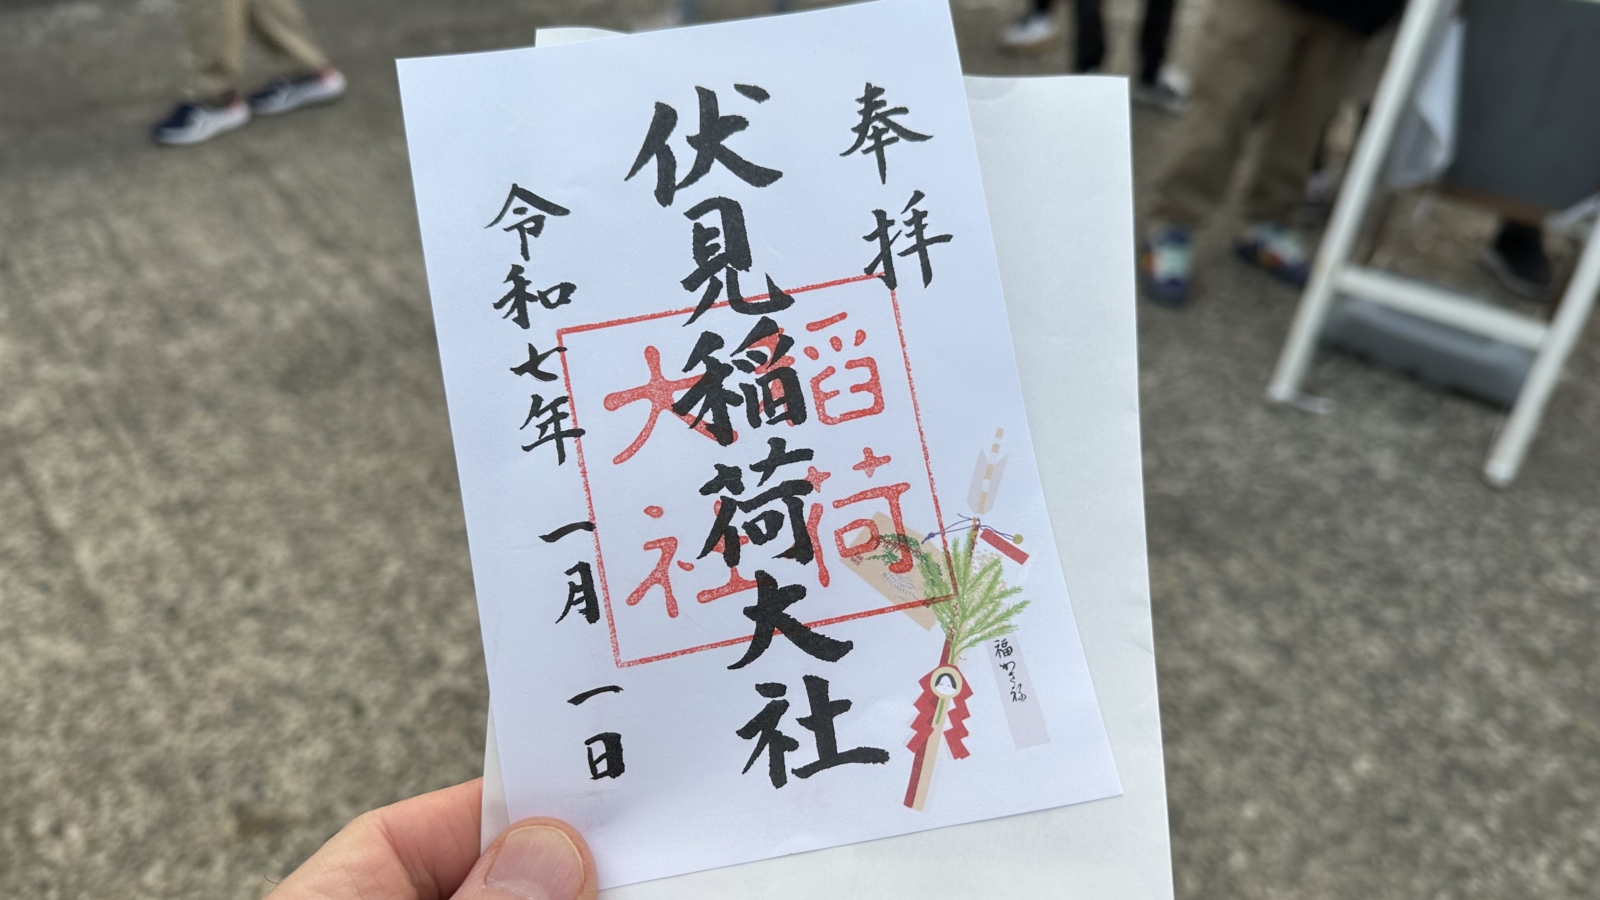 奉拝
伏見稲荷大社
令和七年 一月 一日
稲荷
大社
福かさ福